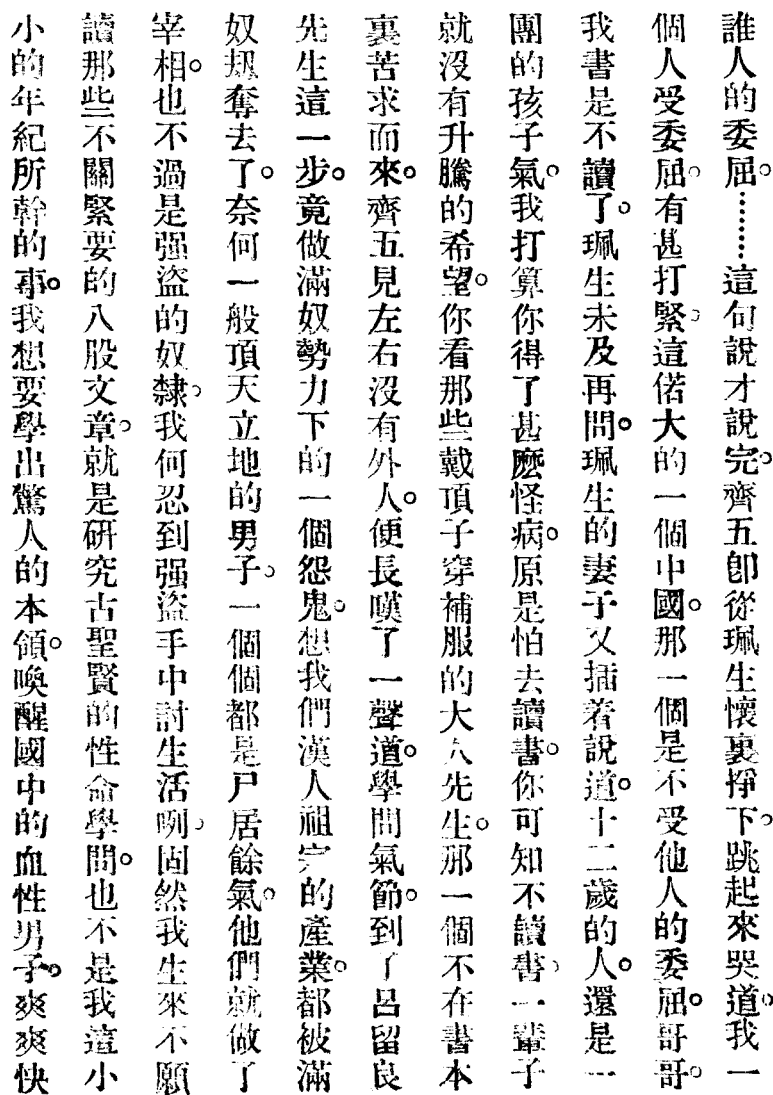 誰人的委屈。……這句說才說完。齊五卽從珮生懷裏掙下。跳起來哭道。我一
個人受委屈。有甚打緊。這偌大的一個中國。那一個是不受他人的委屈。哥哥。
我書是不讀了。珮生未及再問。珮生的妻子又插着說道。十二歲的人。還是一
團的孩子氣。我打算你得了甚麽怪病。原是怕去讀書。你可知不讀書。一輩子
就沒有升騰的希望。你看那些戴頂子穿補服的大人先生。那一個不在書本
裏苦求而來。齊五見左右沒有外人。便長嘆了一聲道。學問氣節。到了呂留良
先生這一步。竟做滿奴勢力下的一個怨鬼。想我們漢人祖宗的產業。都被滿
奴刼奪去了。奈何一般頂天立地的男子。一個個都是尸居餘氣。他們就做了
宰相。也不過是强盜的奴隸。我何忍到强盜手中討生活咧。固然我生來不願
讀那些不關緊要的八股文章。就是研究古聖賢的性命學問。也不是我這小
小的年紀所幹的事。我想要學出驚人的本領。喚醒國中的血性男子。爽爽快